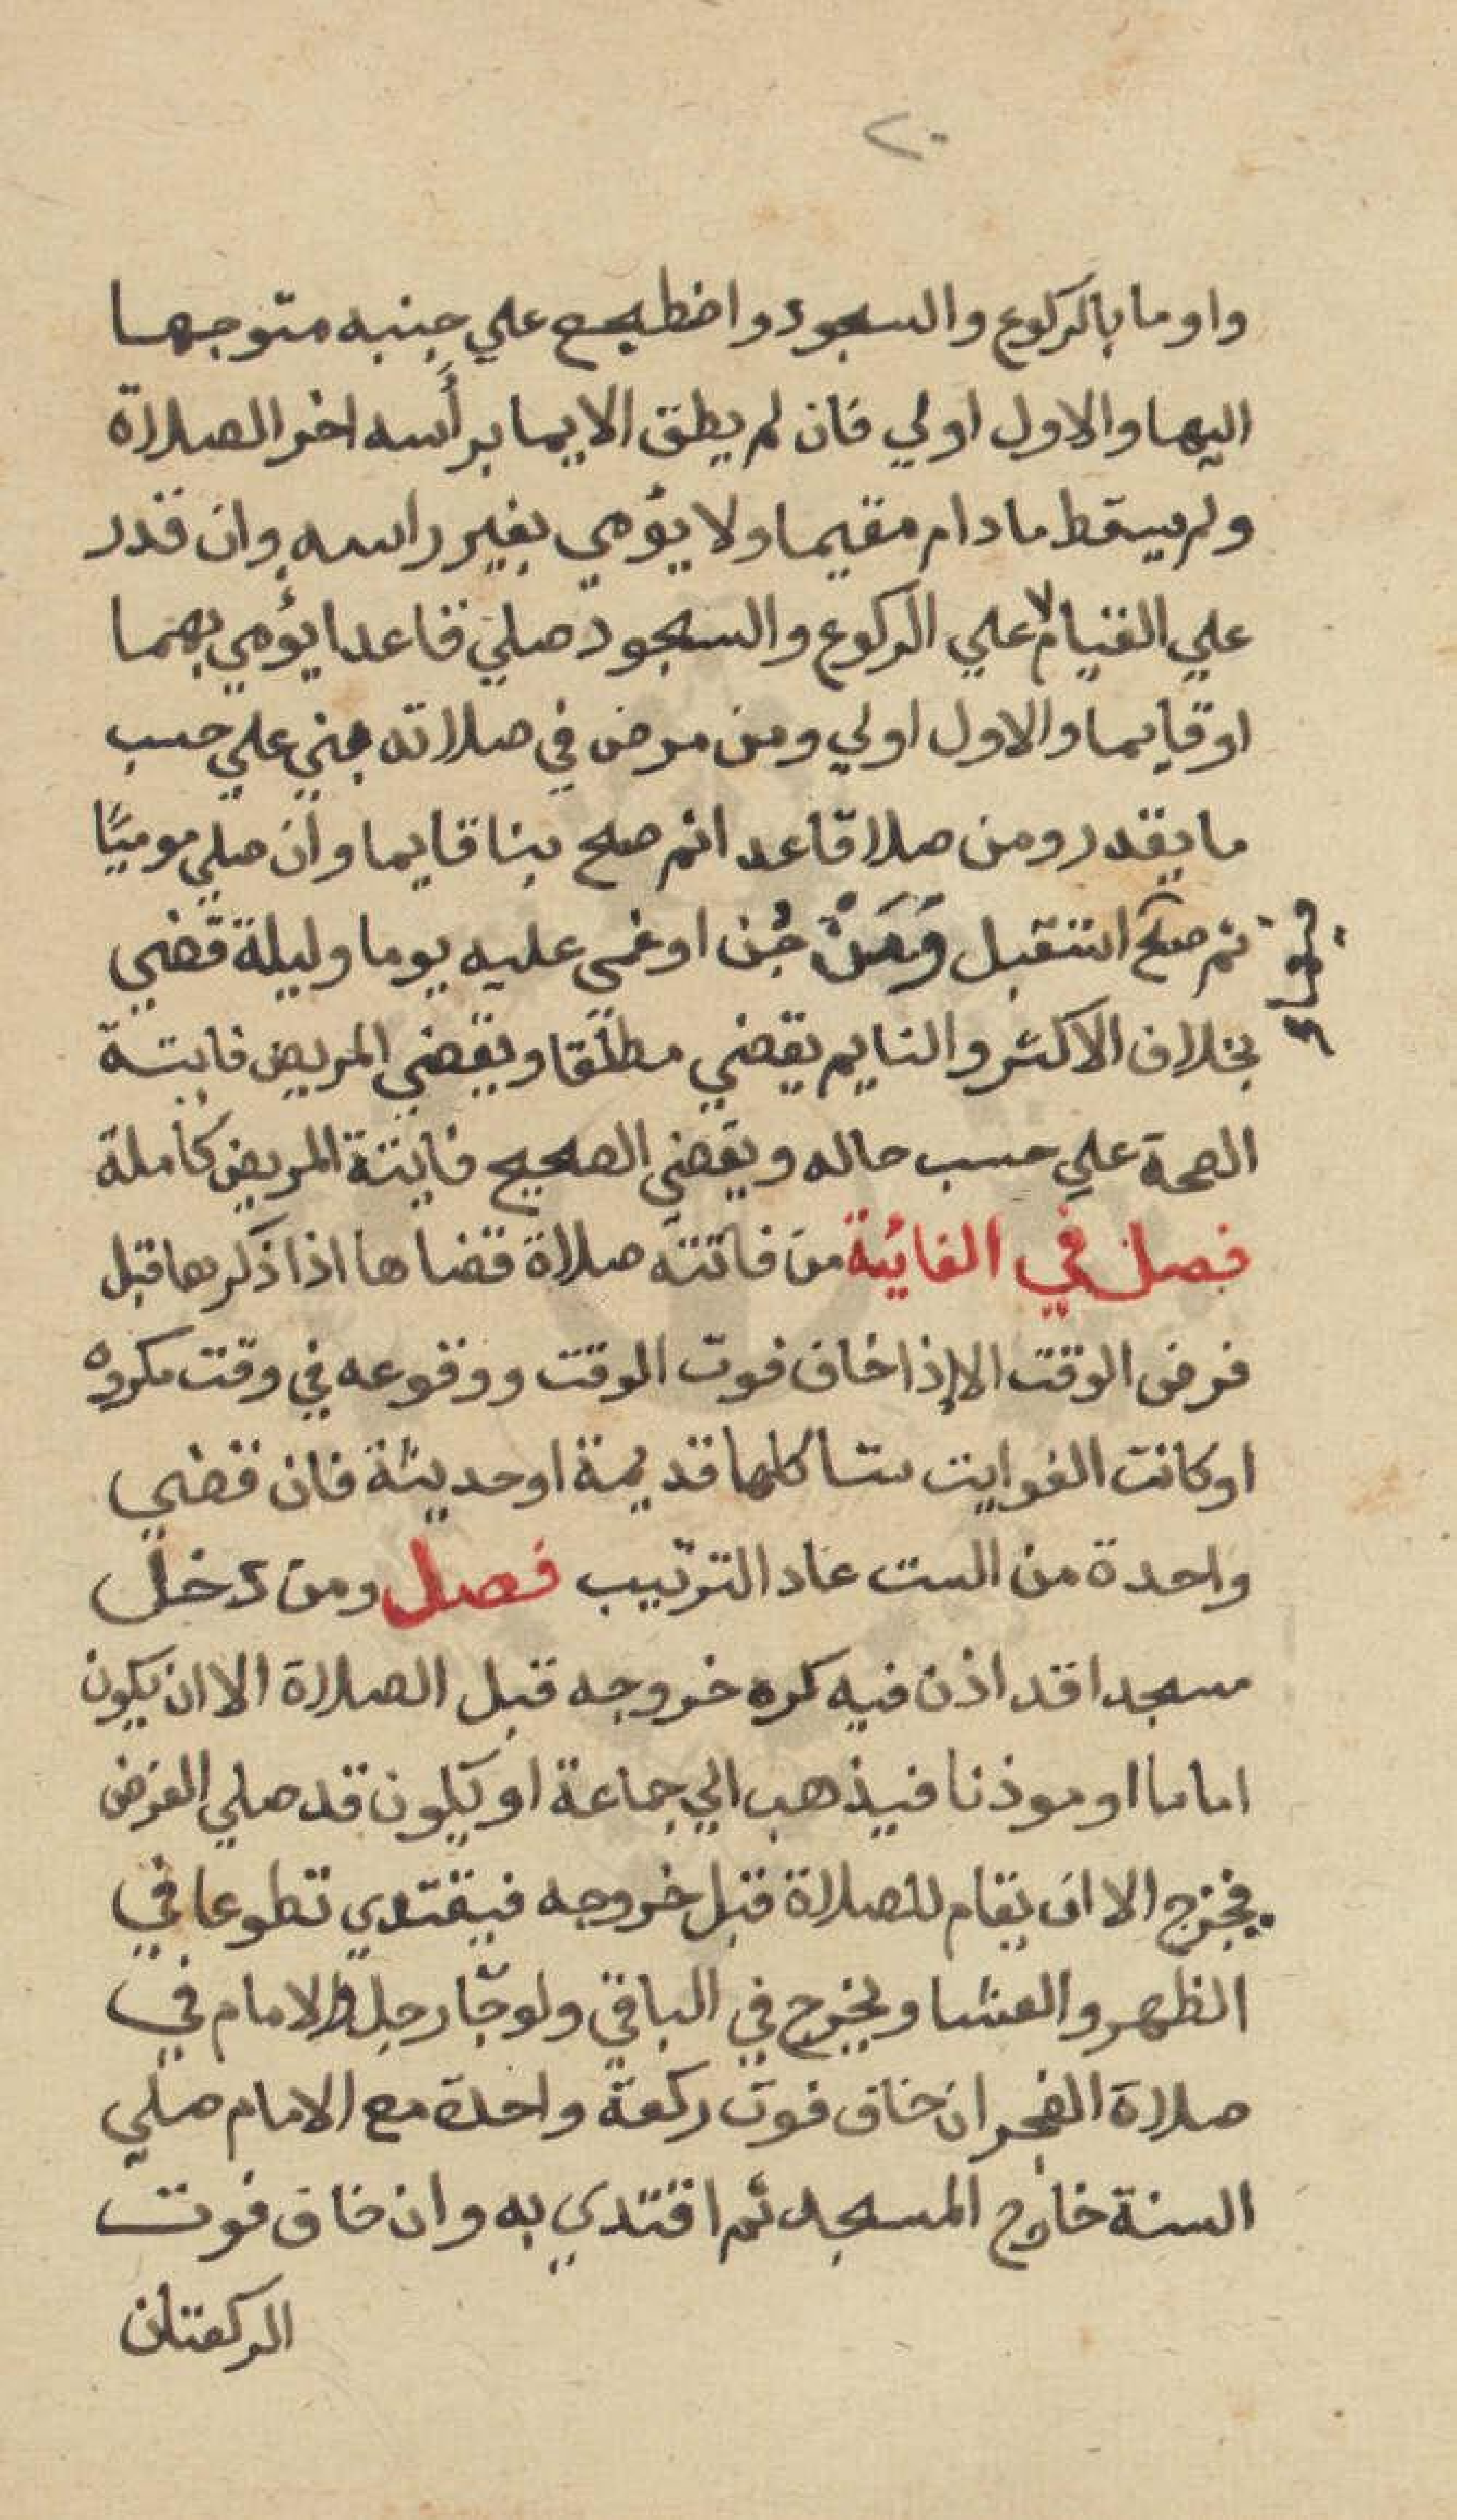 ٢٠
واوما بالركوع والسجود واضطجع علي جنبه متوجها
اليها والاول اولي فان لم يطق الايما برأسه اخر الصلاة
ولم يسقط مادام مقيما ولا يؤمي بغير راسه وان قدر
علي القيام لا علي الركوع والسجود صلي قاعدا يؤمي بهما
او قايما والاول اولي ومن مرض في صلاته بني علي حسب
ما يقدر ومن صلا قاعدا ثم صح بنا قايما وان صلي موميًا
ثم صح استقبل وَمَنْ جُن او غمي عليه يوما وليلة قضي
بخلاف الاكثر والنايم يقضي مطلقا ويقضي المريض فايتة
الصحة علي حسب حاله ويقضي الصحيح فايتة المريض كاملة
فصل في الفائتة من فاتته صلاة قضاها اذا ذكرها قبل
فرض الوقت الا إذا خاف فوت الوقت ووقوعه في وقت مكروه
او كانت الفوايت ستا كلها قديمة او حديثة فان قضي
واحدة من الست عاد الترتيب فصل ومن دخل
مسجدا قد اذن فيه كره خروجه قبل الصلاة الا ان يكون
اماما او موذنا فيذهب الي جماعة او يكون قد صلي الفرض
فيخرج الا ان يقام للصلاة قبل خروجه فيقتدي تطوعا في
الظهر والعشا ويخرج في الباقي ولو جا رجل والامام في
صلاة الفجر ان خاف فوت ركعة واحدة مع الامام صلي
السنة خارج المسجد ثم اقتدي به وان خاف فوت
الركعتان